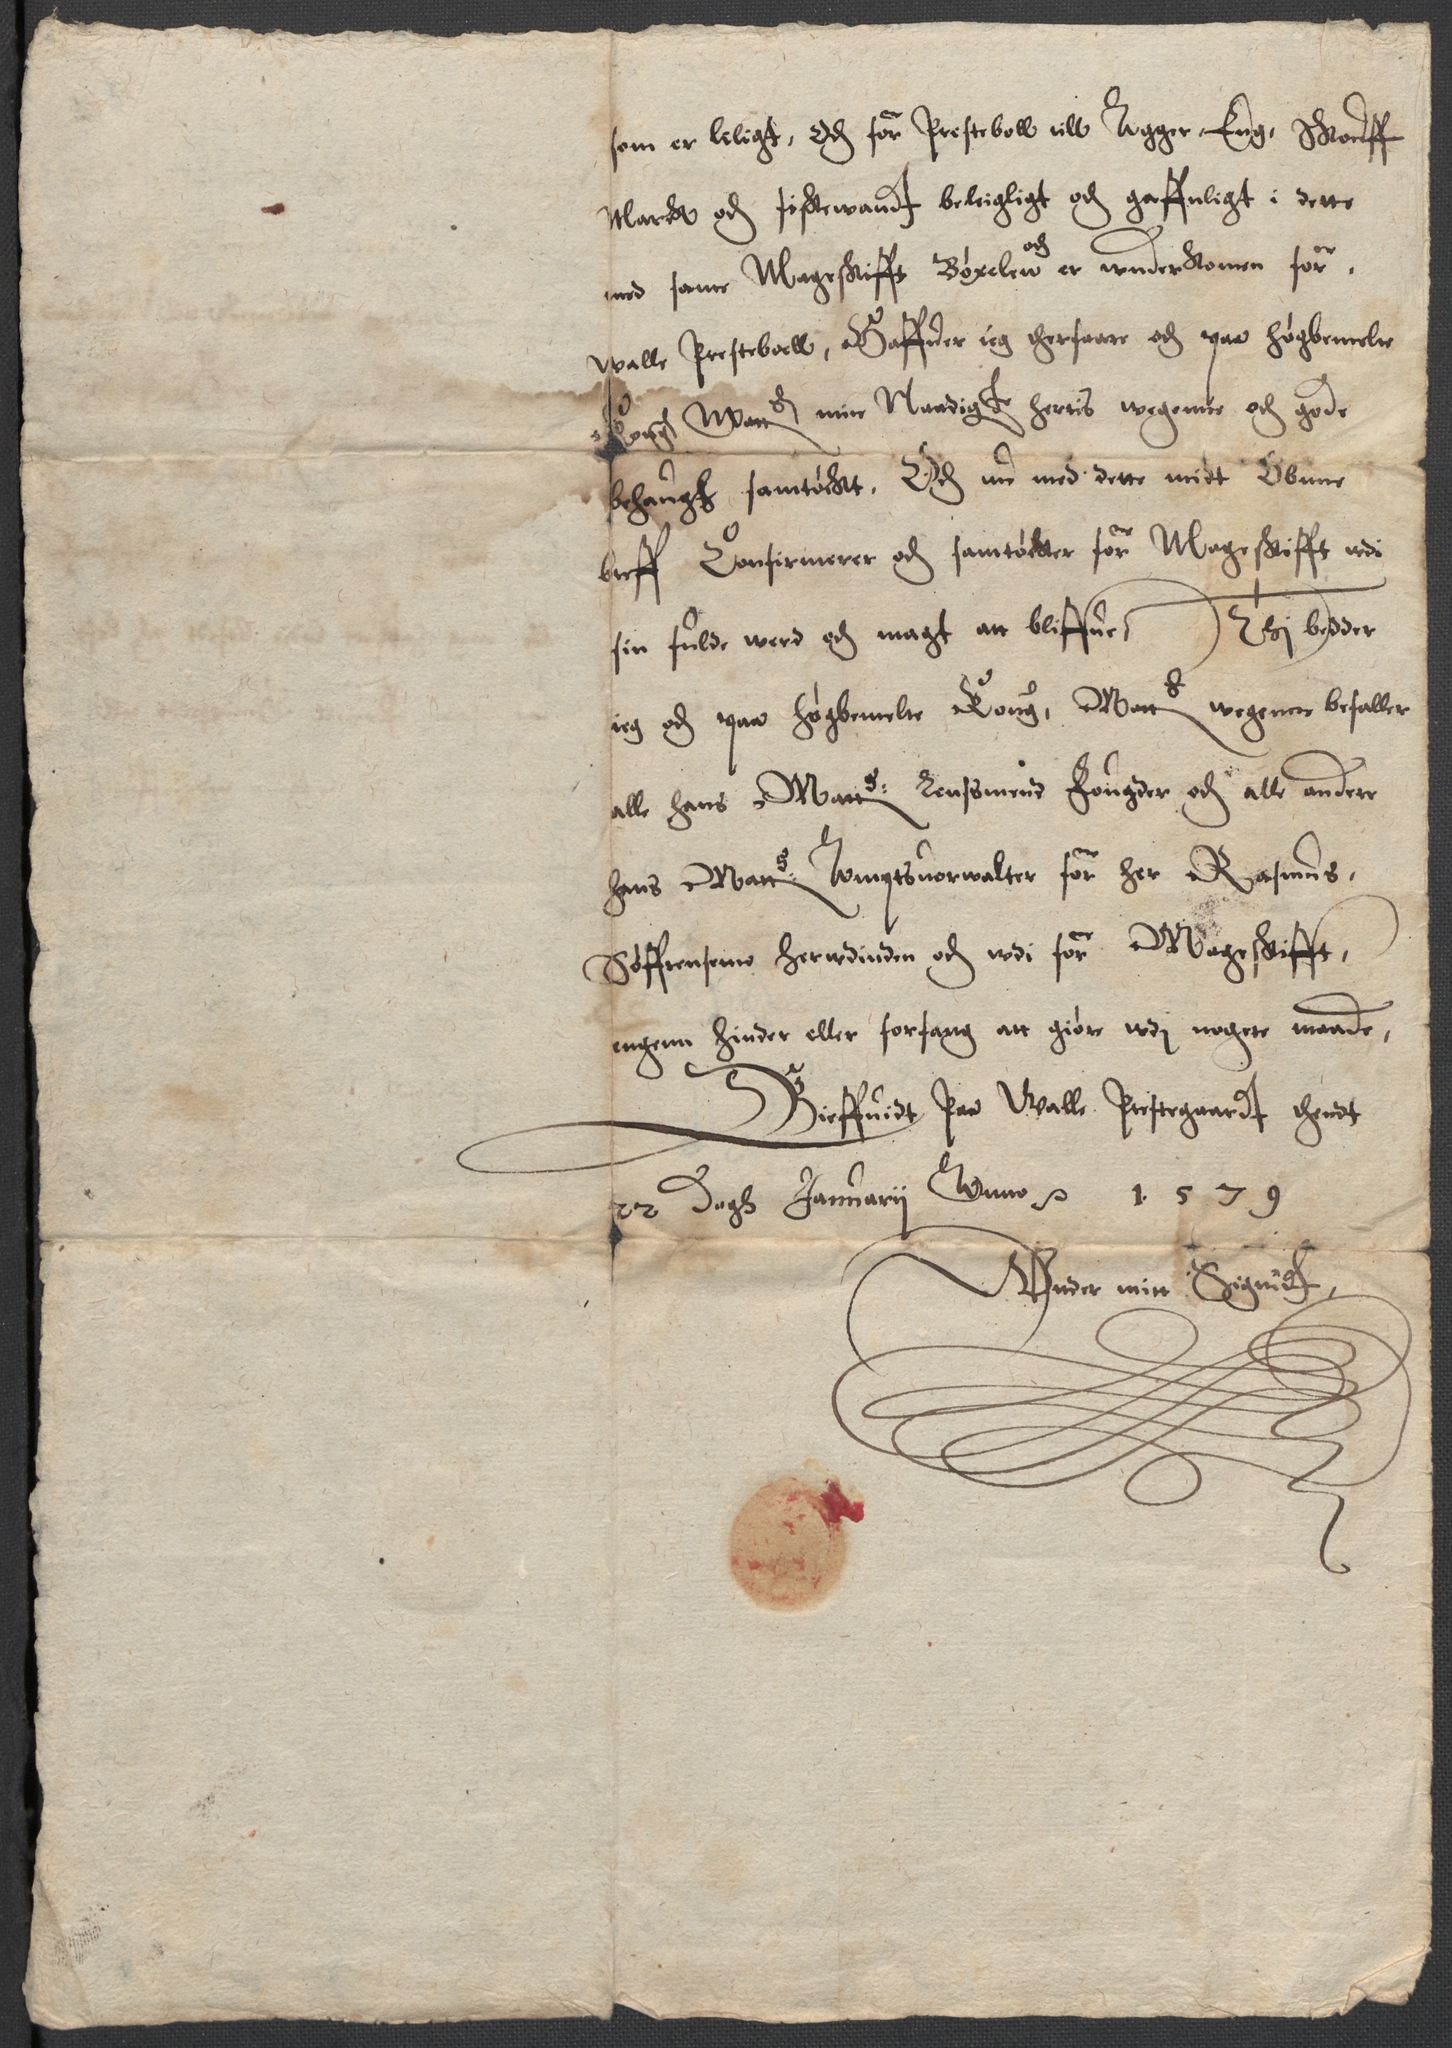 som er leligt, Och för Presteboll till Agger, Eng, Skouff
Marck och fiskewandt beleigligt och gaffnligt i dette
med samme Mageskifft Böxelen och er wnderkomen för,
Walle Presteboell, Haffuer ieg therfaare och paa högbemelte
Kong Matt mine Naadigste herris wegenne och gode
behaugh samtöckt, Och nu med dette midt Obnne
breff Confirmerer och samtöcker för Mageskifft wdi
sin fulde werd och magt att bliffue, Thi bedder
ieg och paa högbemelte Kong, Matts wegenne befaller
alle hans Matts: Lensmend Fougder och alle andere
hans Matts: Amptsuorwalter för her Rasmus,
Söffrensenn herwdinden och wdi för Mageskifft,
ingenn hinder eller forfang att giöre wdi nogere maade,
Gieffuidt Paa Walle Prestegaardt thendt
22 Dagh Januarij Anno 1579
Wnder mitt Signett,